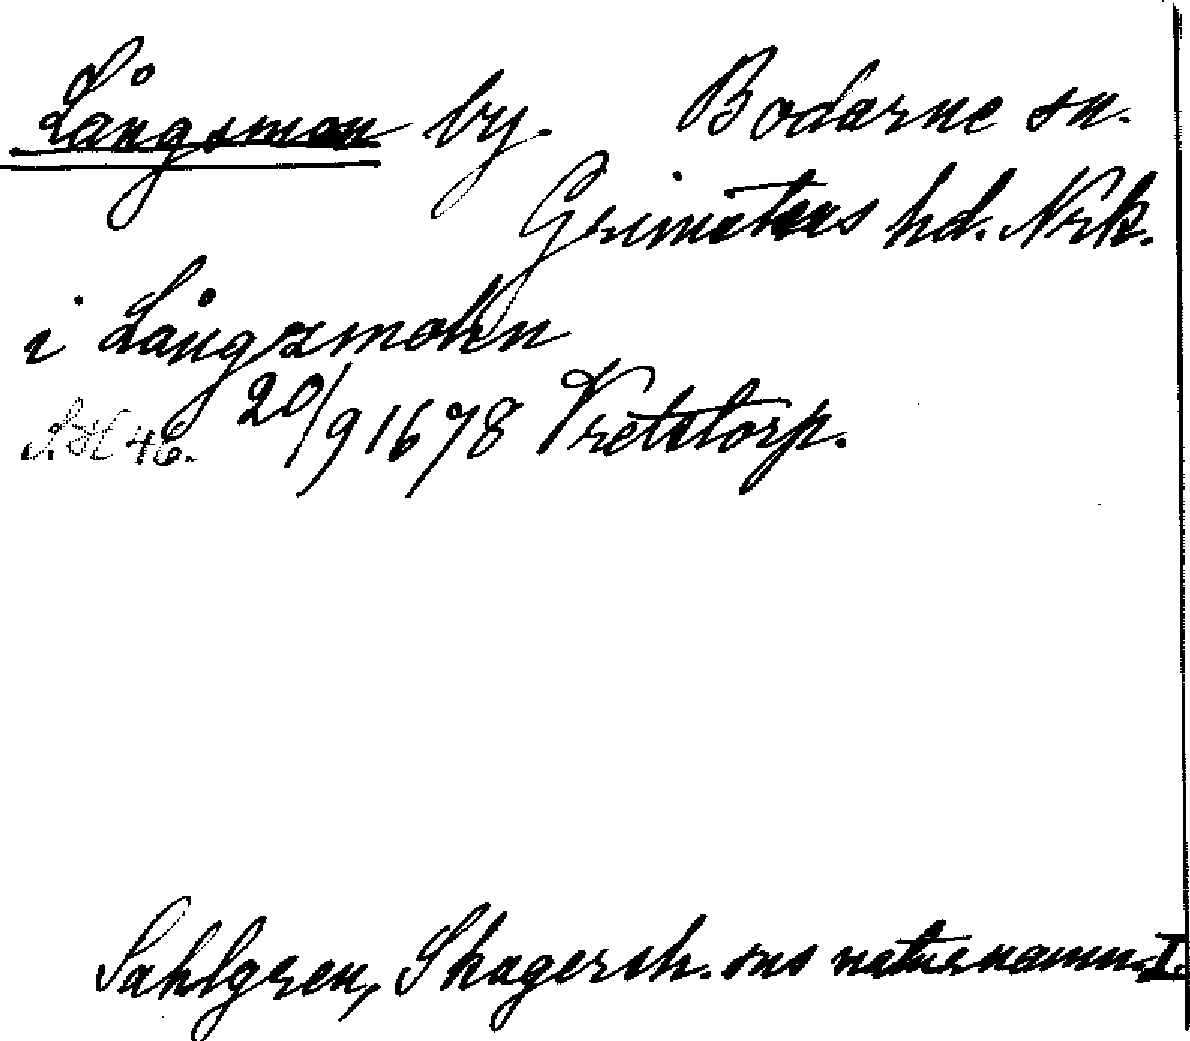 Långsmon by. Bodarne sn.
Grimstens hd. Nrk.
i Långzmohn
20/9 1678 Vretstorp.
Sahlgren, Skagersh. sns naturnamn I.